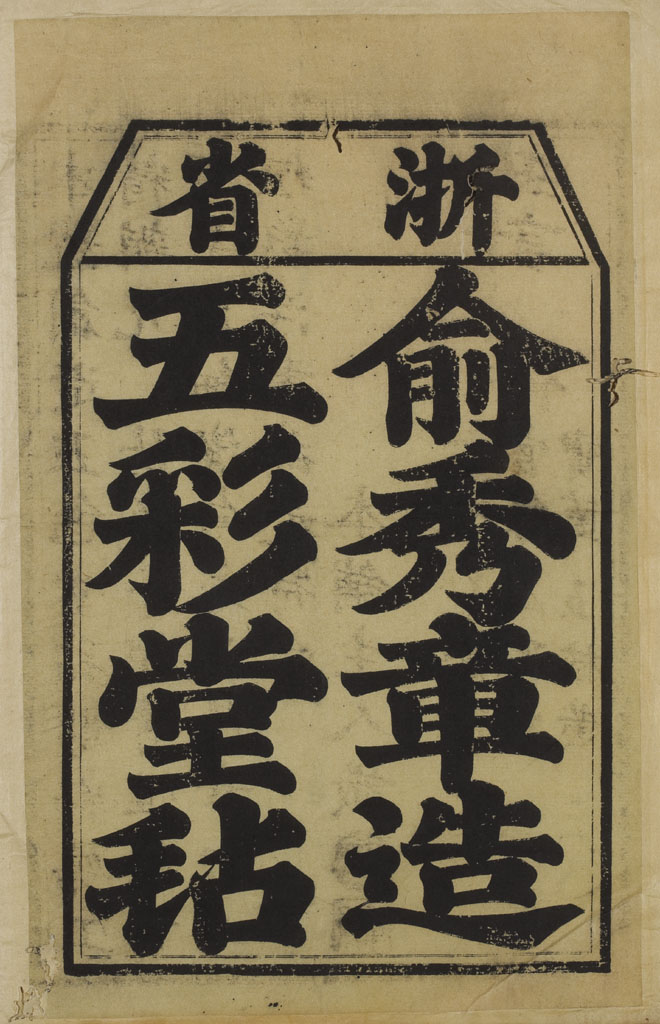 浙省
俞秀章造
五彩堂毡